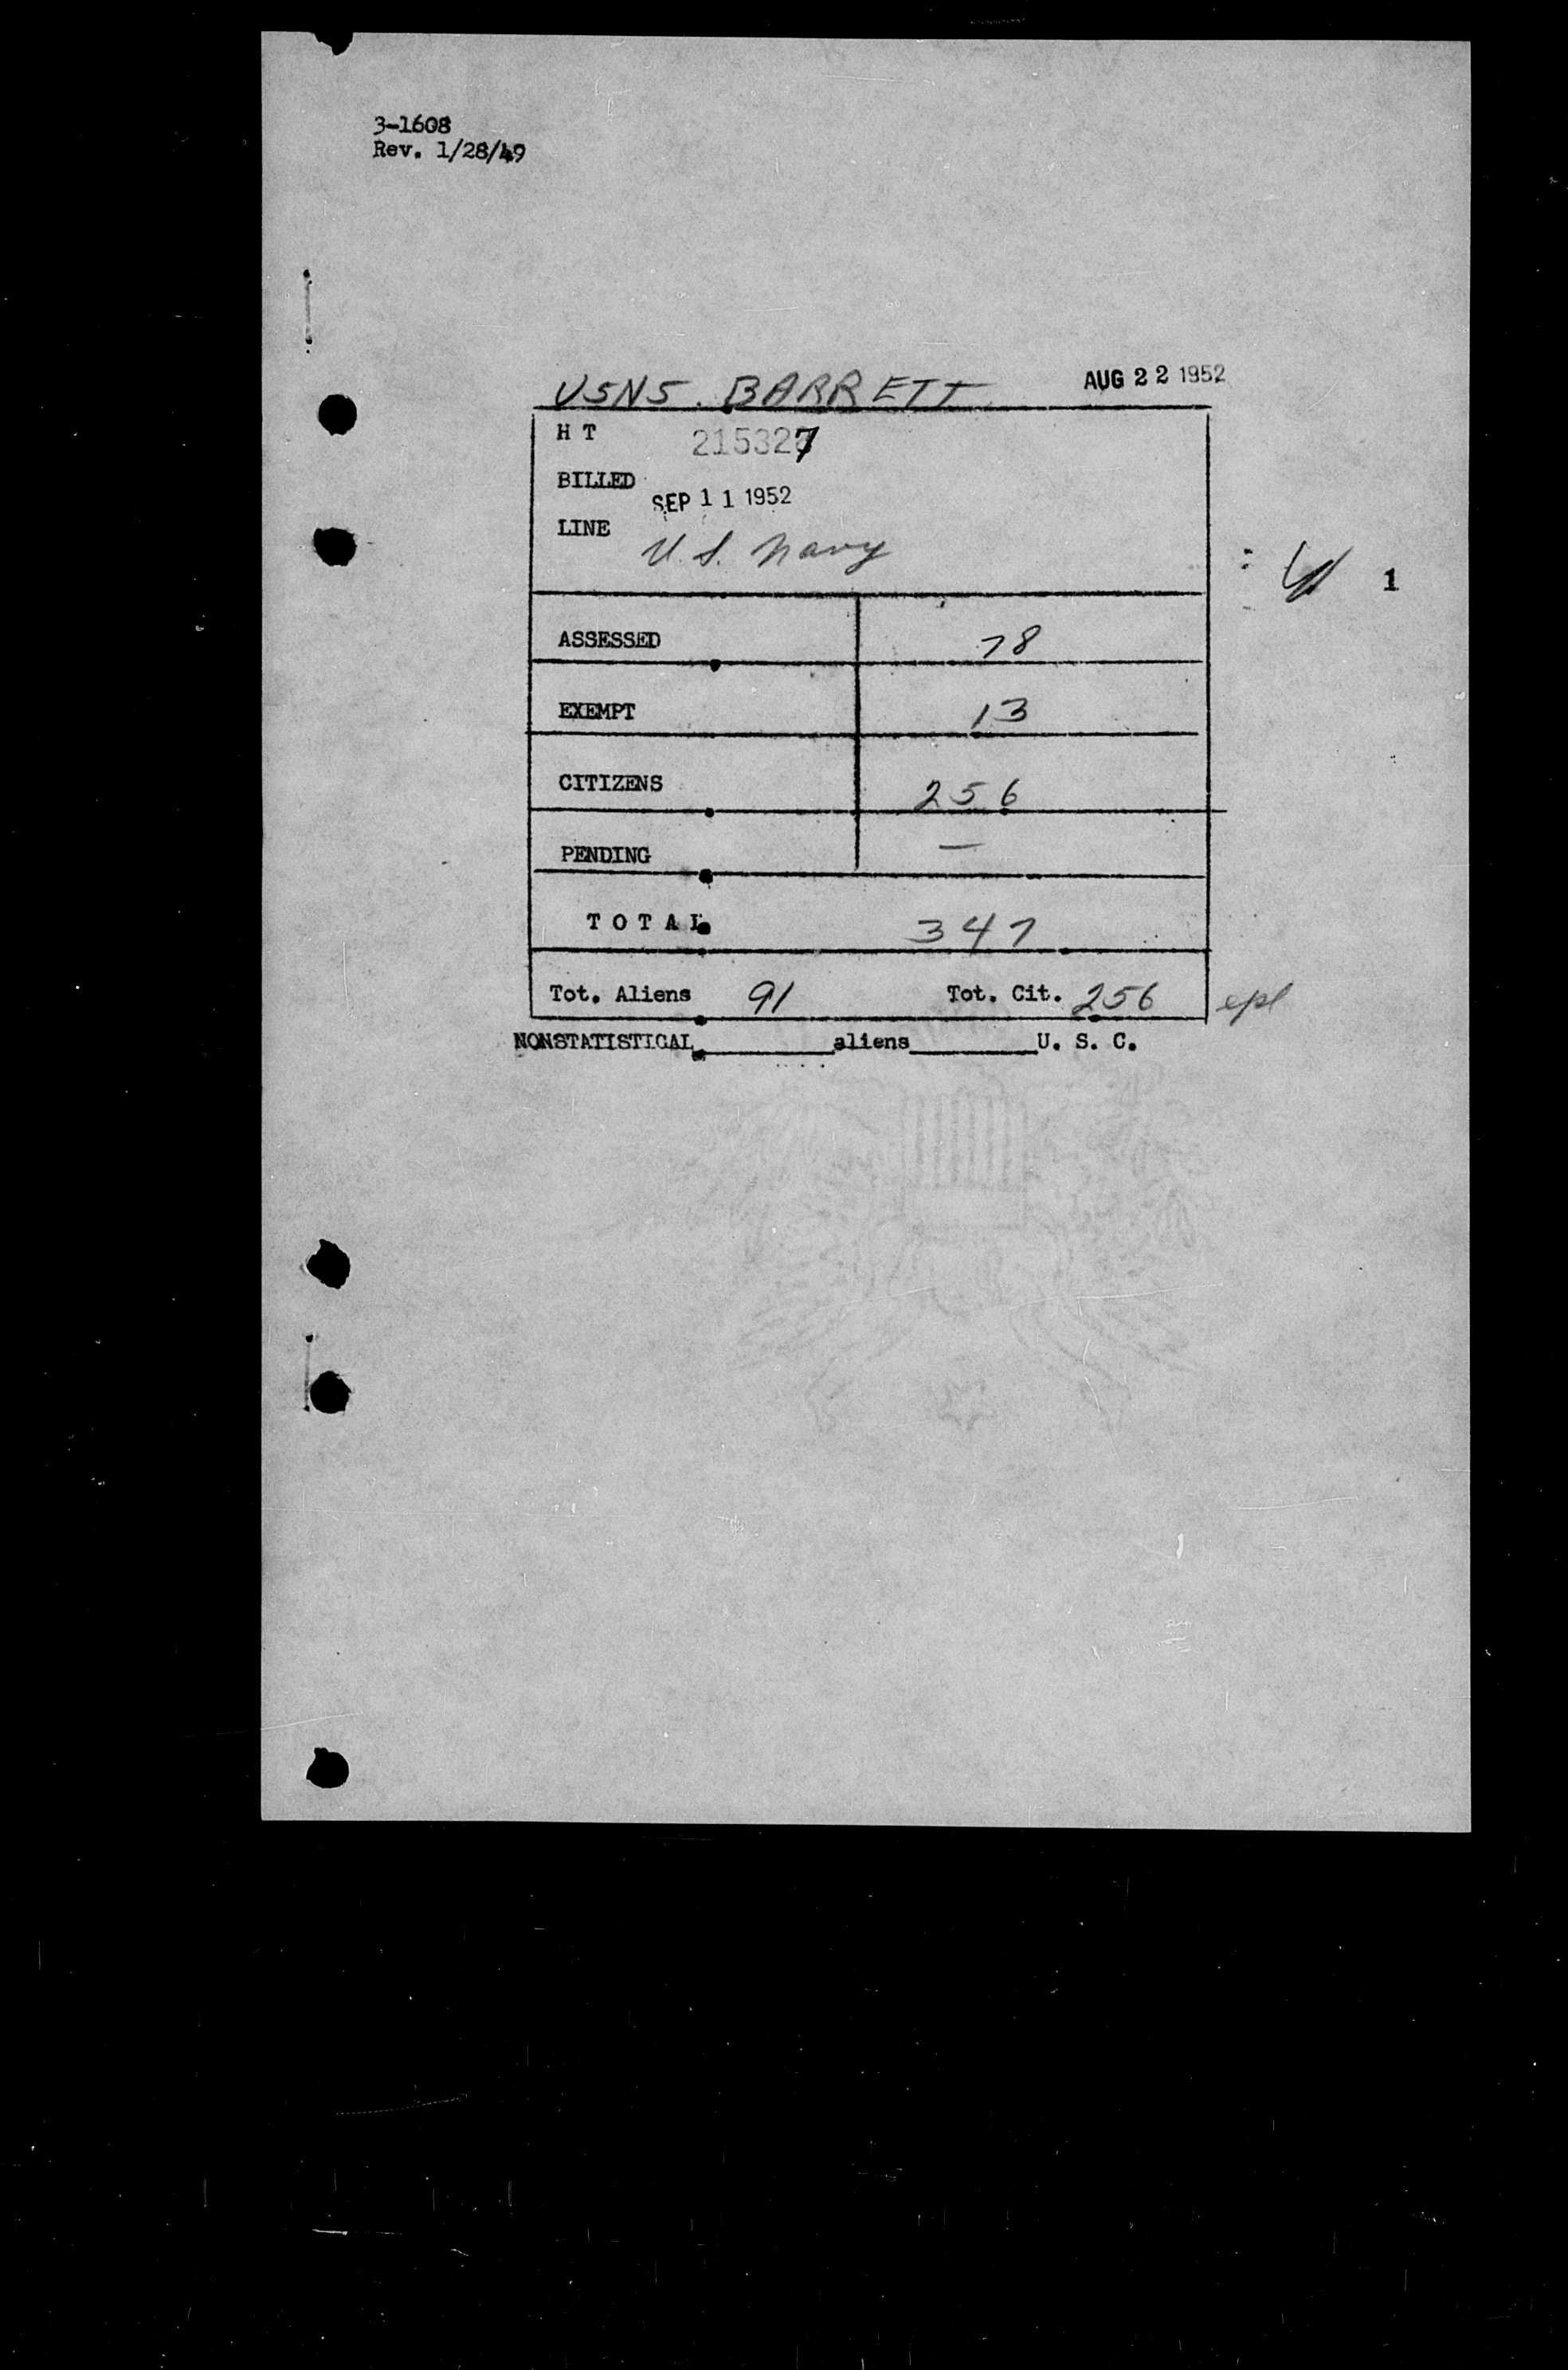 3-1608
Rev. 1/28/49
USNS. BARRETT AUG 22 1952
H T 215327
BILLED SEP 11 1952
LINE U.S. Navy
1
ASSESSED 78
EXEMPT 13
CITIZENS 256
PENDING —
TOTAL 347
Tot. Aliens 91 Tot. Cit. 256 epl
NONSTATISTICAL aliens U. S. C.